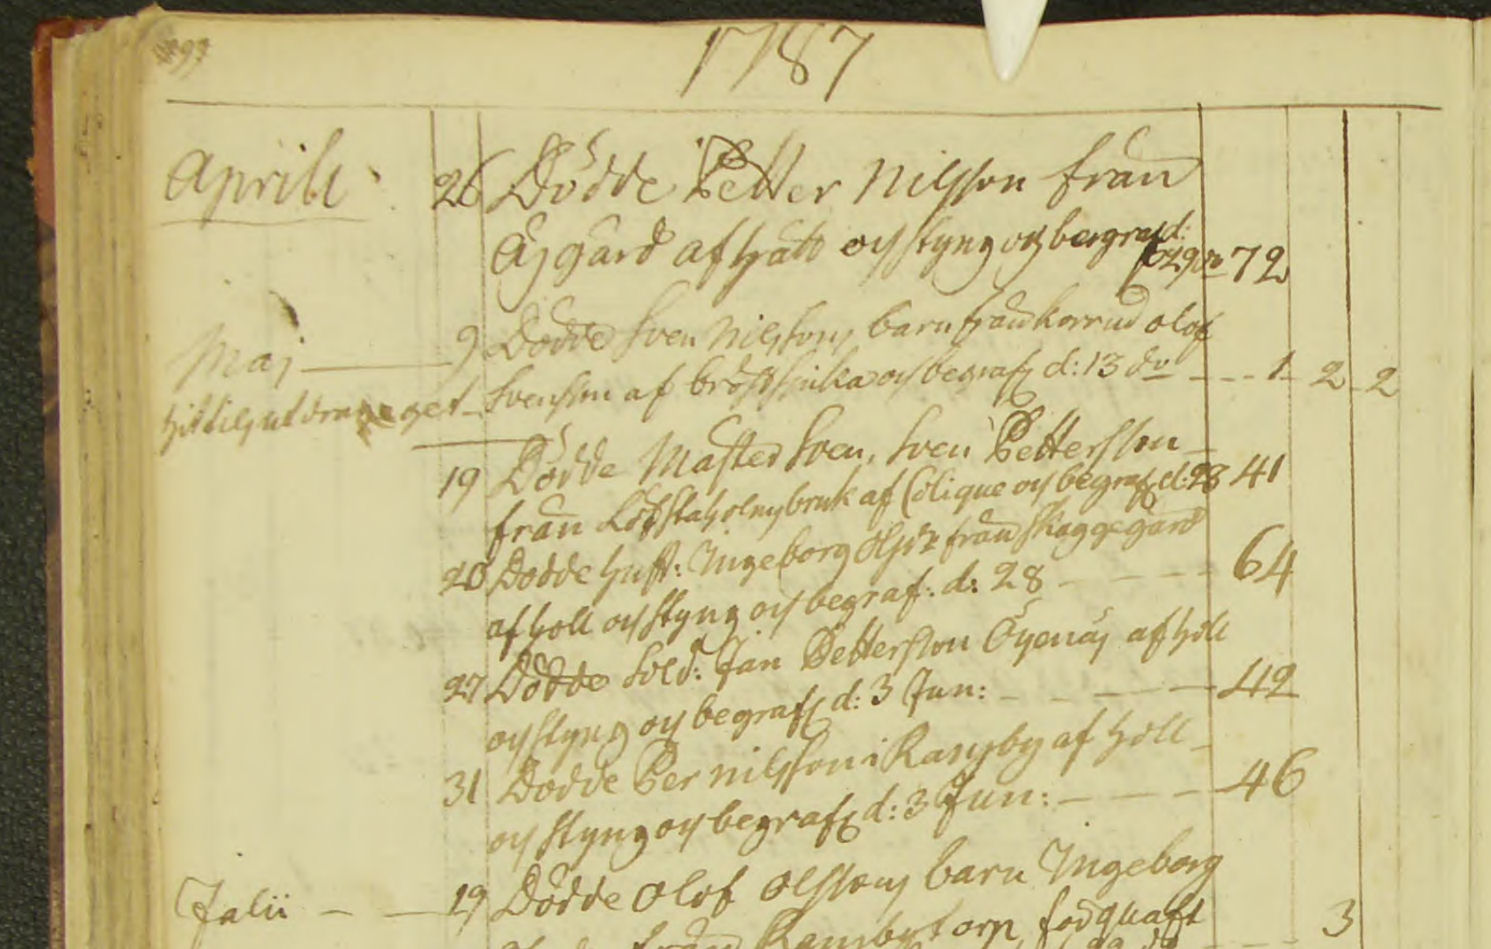 1787
Aprill 26 Dödde Petter Nilsson från
Åsgård af hått och styng och begraf d:
29 do 72
Maj 9 Dödde Sven Nilssons barn från Korrud Olof
hit til utdraget Svensson af bröstsiuka och begraf d: 13 do 1 2 2
19 Dödde Mäster Sven, Sven Pettersson
från Löfstaholms bruk af Colique och begraf d: 28 41
20 Dödde hust: Ingeborg från Skaggegård
af holl och styng och begraf: d: 28 64
27 Dödde Sold: Jan Pettersson Öyenäs af holl
och styng och begraf d: 3 Jun: 42
31 Dödde Per Nilsson i Ransby af holl
och styng och begraf d: 3 Jun: 46
Julii 19 Dödde Olof Olssons barn Ingeborg
från torp 3